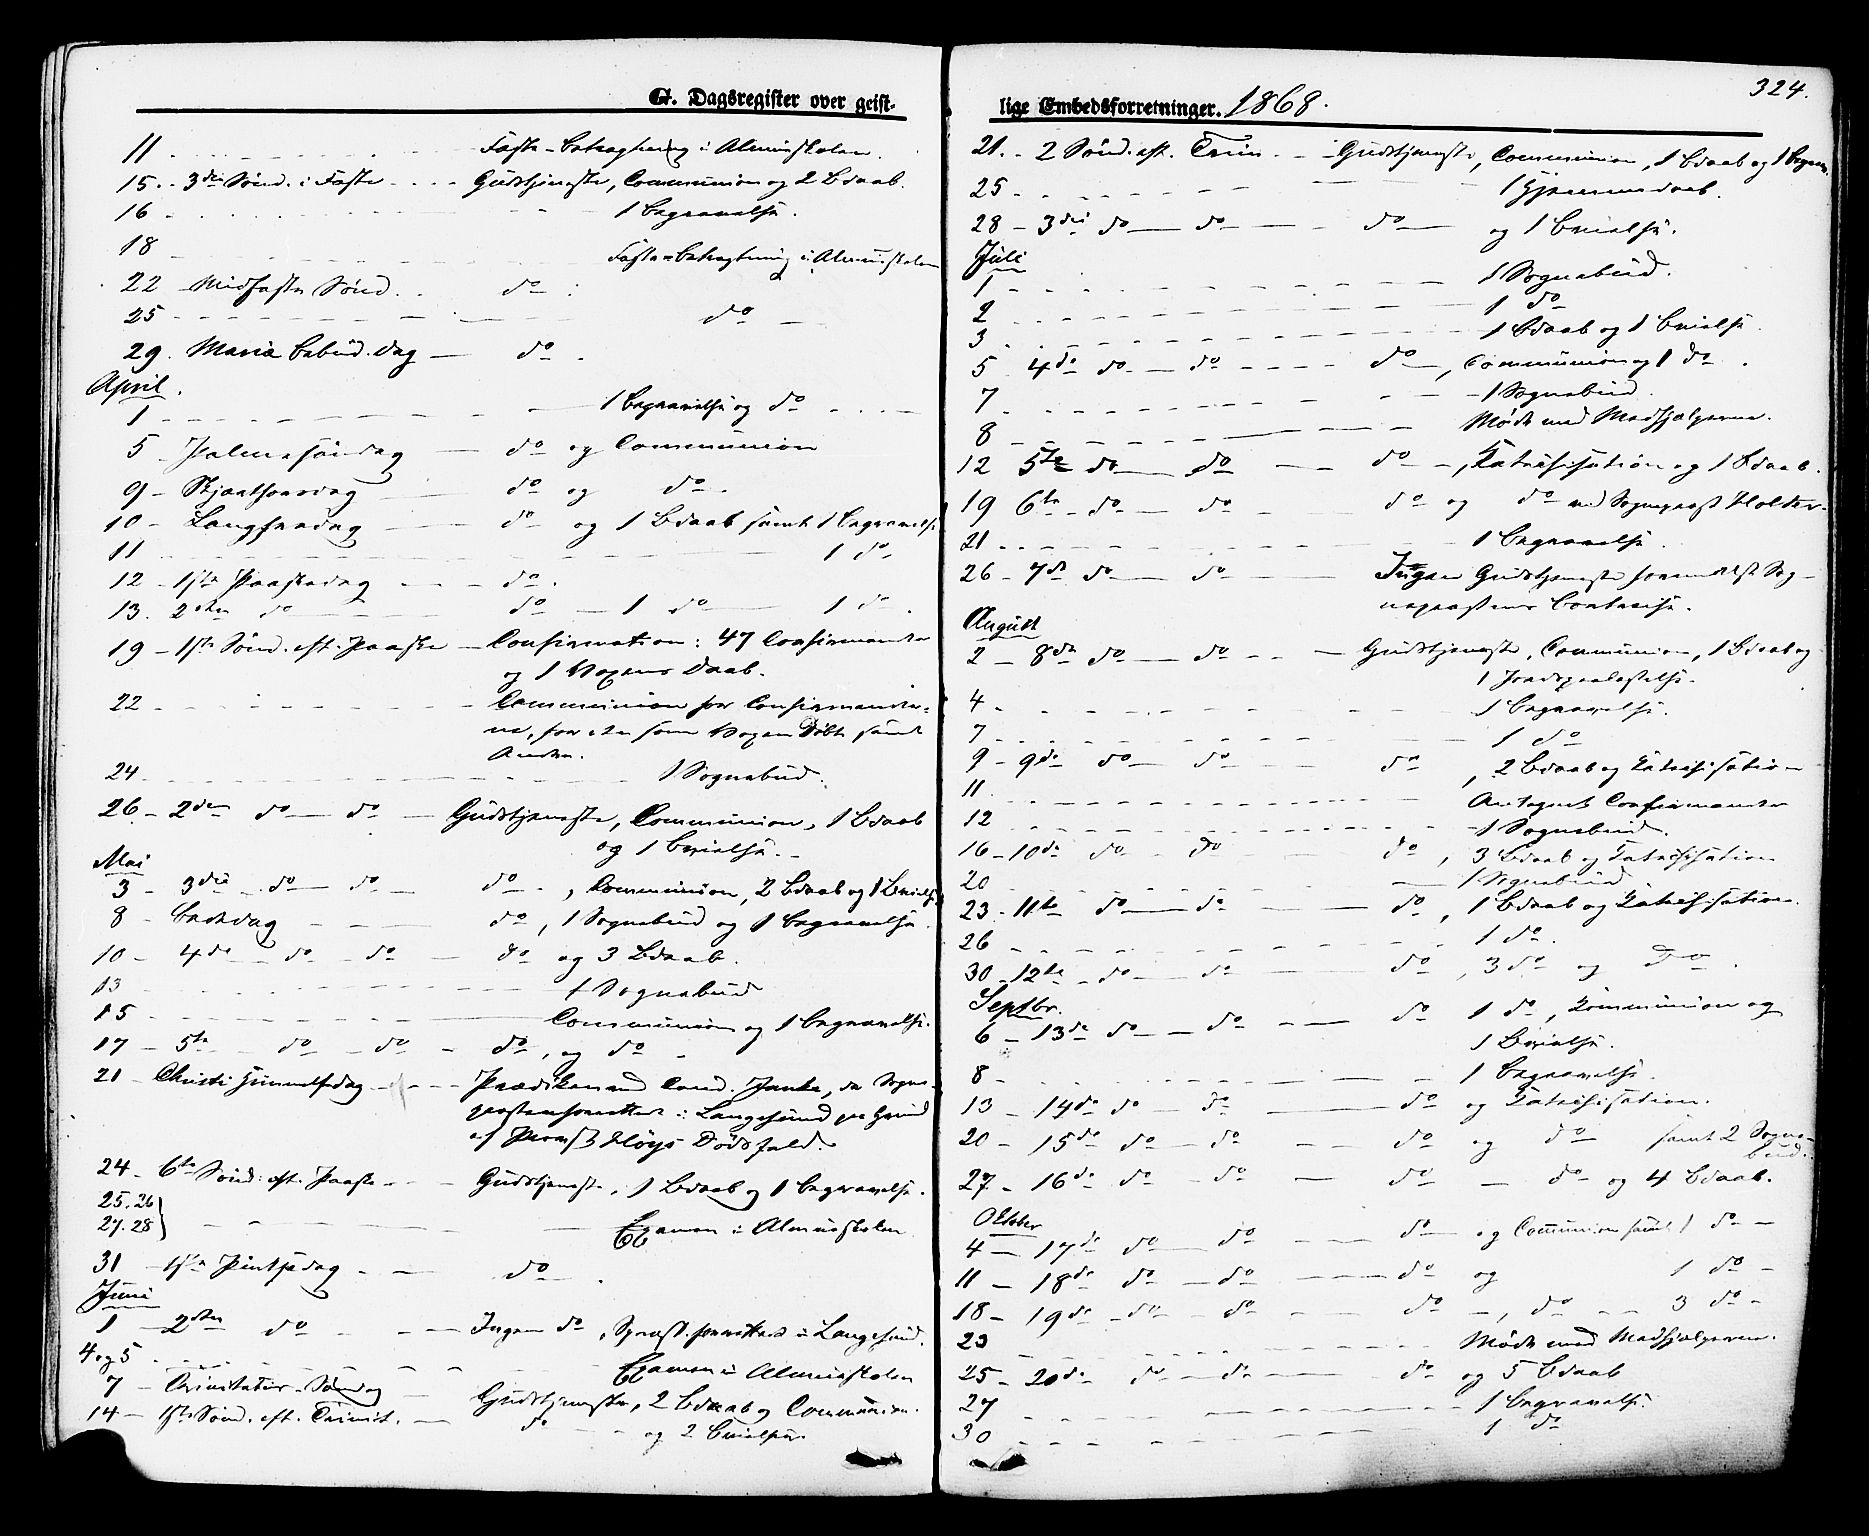 G. Dagsregister over geist-
11 - - - Faste-betragtning i Almueskolen.
15. - 3die Sønd. i Faste - - - Gudstjeneste, Communion og 2 Bdaab.
16 - - - 1 Begravelse.
18 - - - Faste-betragtning i Almueskolen
22 - Midfaste Sønd. - - do
25 - - - do -
29. Mariæ Bebud. Dag - do.
April.
1 - - - 1 Begravelse og do - - -
5 - Palmesøndag - do og Communion
9 - Skjærthorsdag - do og do.
10 - Langfredag - do og 1 Bdaab samt 1 Begravelse
11 - - - 1 do
12 - 1ste Paaskedag - - do.
13. 2den do - do - 1 do - 1 do.
19 - 1ste Sønd. eft. Paaske - Confirmation: 47 Confirmander
og 1 Voxens Daab.
22 - - - Communion for Confirmander-
ne, for den som Voxen Døbte samt
Andre.
24 - - - 1 Sognebud.
26 - 2den do - do - Gudstjeneste, Communion, 1 Bdaab
og 1 Vielse. -
Mai
3 - 3die - do - do - do - , Communion, 2 Bdaab og 1 Vielse
8 - Bededag - - - do, 1 Sognebud og 1 Begravelse.
10 - 4de - do - do - do og 3 Bdaab.
13 - - - 1 Sognebud
15 - - - Communion og 1 Begravelse.
17 - 5te - do - do - do, og do -
21 - Christi Himmelfdag - - - Prædiken ved Cand. Janke, da Sogne-
præsten forrettede i Langesund paa Grund
af Provst Høys Dødsfald.
24 - 6te Sønd. eft. Paaske - - Gudstjeneste, 1 Bdaab og 1 Begravelse.
25. 26
27. 28 } - - - Examen i Almueskolen
31 - 1ste Pintsedag - - do.
Juni
1 - 2den do - - - Ingen do, Spræst. forrettede i Langesund.
4 og 5 - - - Examen i Almueskolen
7 - Trinitatis-Søndag - Gudstjeneste, 2 Bdaab og Communion.
14 - 1ste Sønd. eft. Trinit. - do - - og 2 Vielser
324.
lige Embedsforretninger. 1868.
21. - 2 Sønd. eft. Trin. - - Gudstjeneste, Communion, 1 Bdaab og 1 Begrav.
25 - - - 1 Hjemmedaab.
28 - 3die do - do - - do - og 1 Vielse.
Juli
1 - - - 1 Sognebud.
2 - - - 1 do
3 - - - 1 Bdaab og 1 Vielse.
5 - 4de do - do - - do - , Communion og 1 do.
7 - - - 1 Sognebud.
8 - - - Møde med Medhjælperne.
12 5te do - do - - do - , Katechisation og 1 Bdaab.
19 6te - do - do - do og do ved Sognepræst Holder-
21 - - - 1 Begravelse.
26 - 7de do - do - - Ingen Gudstjeneste formedelst Sog-
nepræstens
August
2 - 8de do - do - - - Gudstjeneste, Communion, 1 Bdaab og
1 Jordpaakastelse.
4 - - - 1 Begravelse.
7 - - - 1 do
9 - 9de do - do - do , 2 Bdaab og Katechisation
11 - - - Antegnet Confirmander
12 - - - 1 Sognebud.
16 - 10de do - do - do , 3 Bdaab og Katechisation
20 - - - 1 Sognebud
23 - 11te do - do - - do , 1 Bdaab og Katechisation.
26 - - - 1 do.
30 - 12te - do - do - - do , 3 do og do.
Septbr.
6 - 13de do - do - - do 1 do, Kommunion og
1 Vielse.
8 - - - 1 Begravelse.
13 - 14de do - do - - do og Katechisation.
20 - 15de do - do - do og do samt 2 Sogne-
bud.
27 - 16de do - do - do - do og 4 Bdaab.
Oktober
4 - 17de do - do - do - og Communion samt 1 do -
11 - 18de do - do - - do og 1 do -
18 - 19de - do - do - - do - , do - - 3 do -
23 - - - Møde med Medhjælperne.
25 - 20de do - do - - do og 5 Bdaab
27 - - - 1 Begravelse.
30 - - - 1 do